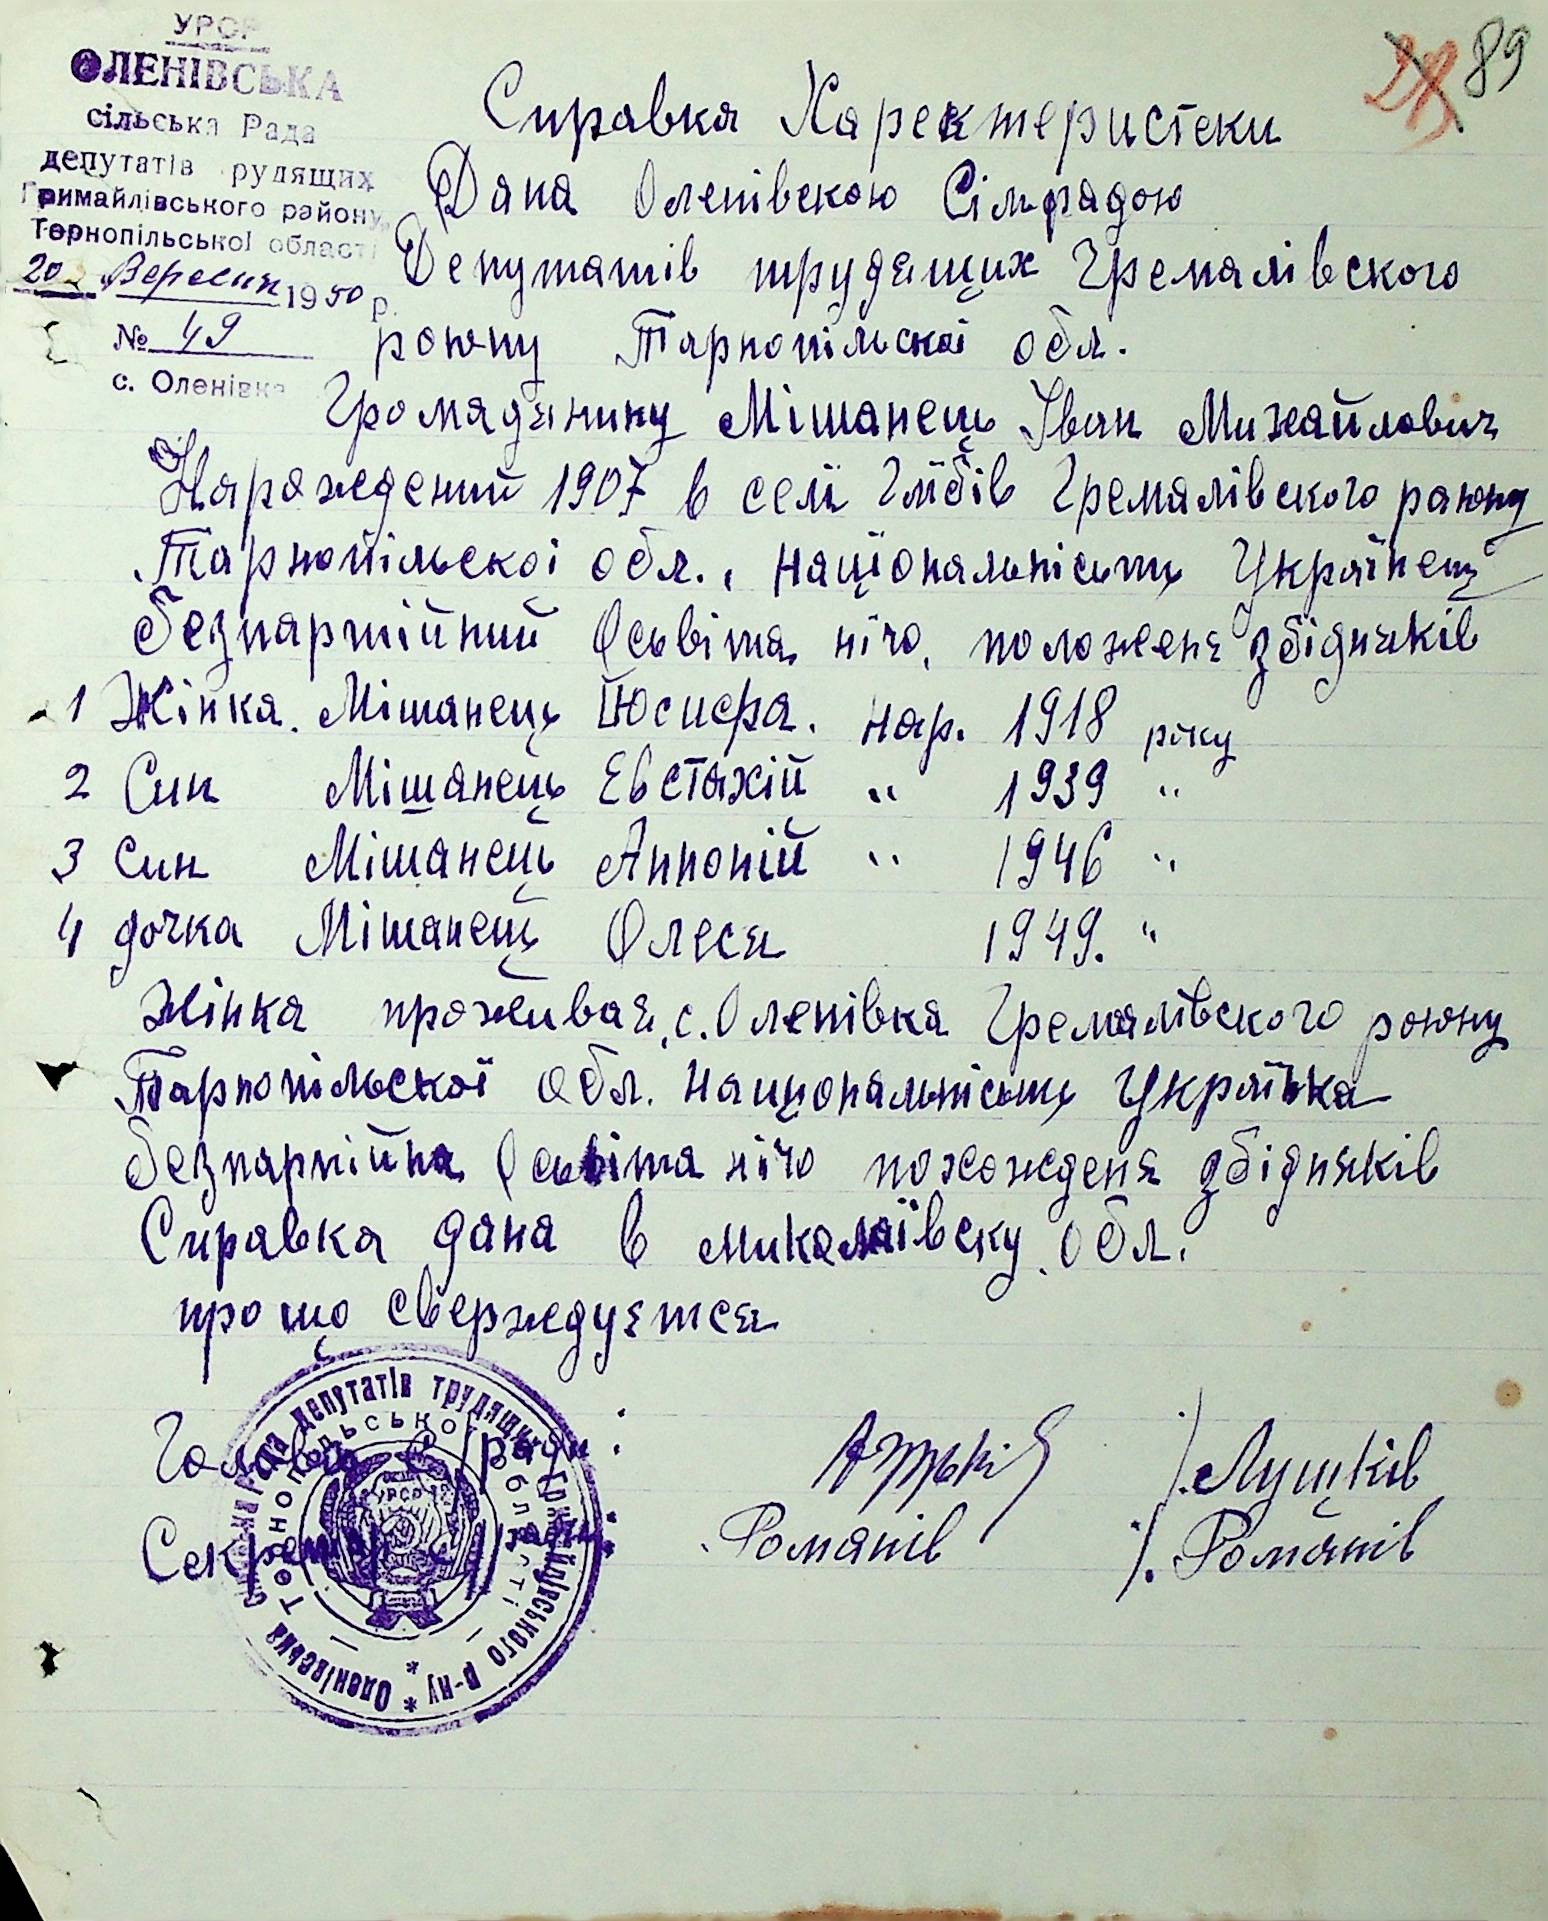 УРСР
ОЛЕНІВСЬКА
сільська Рада
депутатів рудящих
Гримайлівського району
Тернопільської області
20 Вересня 1950 р.
№ 49
с. Оленівка
89
Справка Характеристеки
Дана Оленівскою Сільрадою
Депутатів трудящих Гремалівского
району Тарнопільскої обл.
Громадянину Мішанець Іван Михайлович
Нарождений 1907 в селі Глібів Гремалівского району
Тарнопільскої обл., національність Українець
безпартійний Осьвіта нічо, положеня збідняків
1 Жінка. Мішанець Юсифа. нар. 1918 року
2 Син Мішанець Евстахій " 1939 "
3 Син Мішанець Антоній " 1946 "
4 дочка Мішанець Олеся 1949. "
Жінка проживає, с. Оленівка Гремалівского району
Тарнопільскої обл. національність Українка
безпартійна Осьвіта нічо похожденя збідняків
Справка дана в миколаївску обл.
про що сверждуєтся
Голова с/ради: /. Лущків
Секретар с/ради: Романів /. Романів
Оленівська сільська Рада депутатів трудящих Гримайлівського р-ну *
Тернопільської області *
УРСР